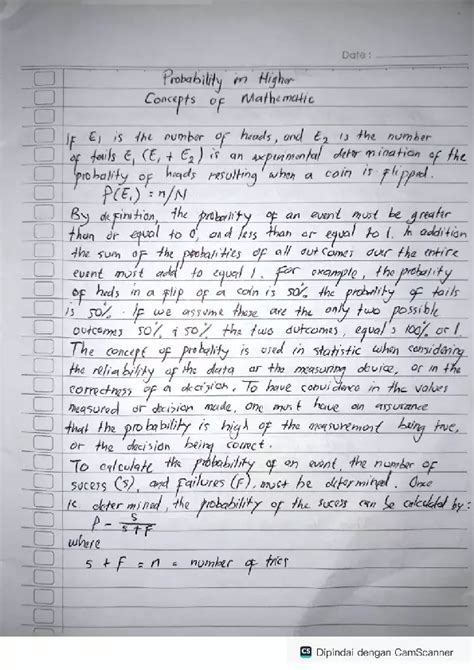 Date :
Probability in Higher
Concepts of Mathematic
If E1 is the number of heads, and E2 is the number
of tails E1 (E1 + E2) is an experimental deter mination of the
probality of heads resulting when a coin is flipped.
P(E1) = n/N
By definition, the probality of an event must be greater
than or equal to 0, and less than or equal to 1. In addition
the sum of the probalities of all outcomes over the entire
event must add to equal 1. For example, the probality
of heds in a flip of a coin is 50%, the probality of tails
is 50%. If we assume these are the only two possible
outcomes 50% + 50% the two outcomes, equal's 100% or 1.
The concept of probality is used in statistic when considering
the reliability of the data or the measuring device, or in the
correctness of a decision. To have convidance in the values
measured or decision made, one must have an assurance
that the probability is high of the measurement being true,
or the decision being correct.
To calculate the probability of an event, the number of
sucess (s), and failures (F), must be determined. Once
is deter mined, the probability of the sucess can be calculated by:
P = s/s+F
where
s + F = n = number of tries
CS Dipindai dengan CamScanner